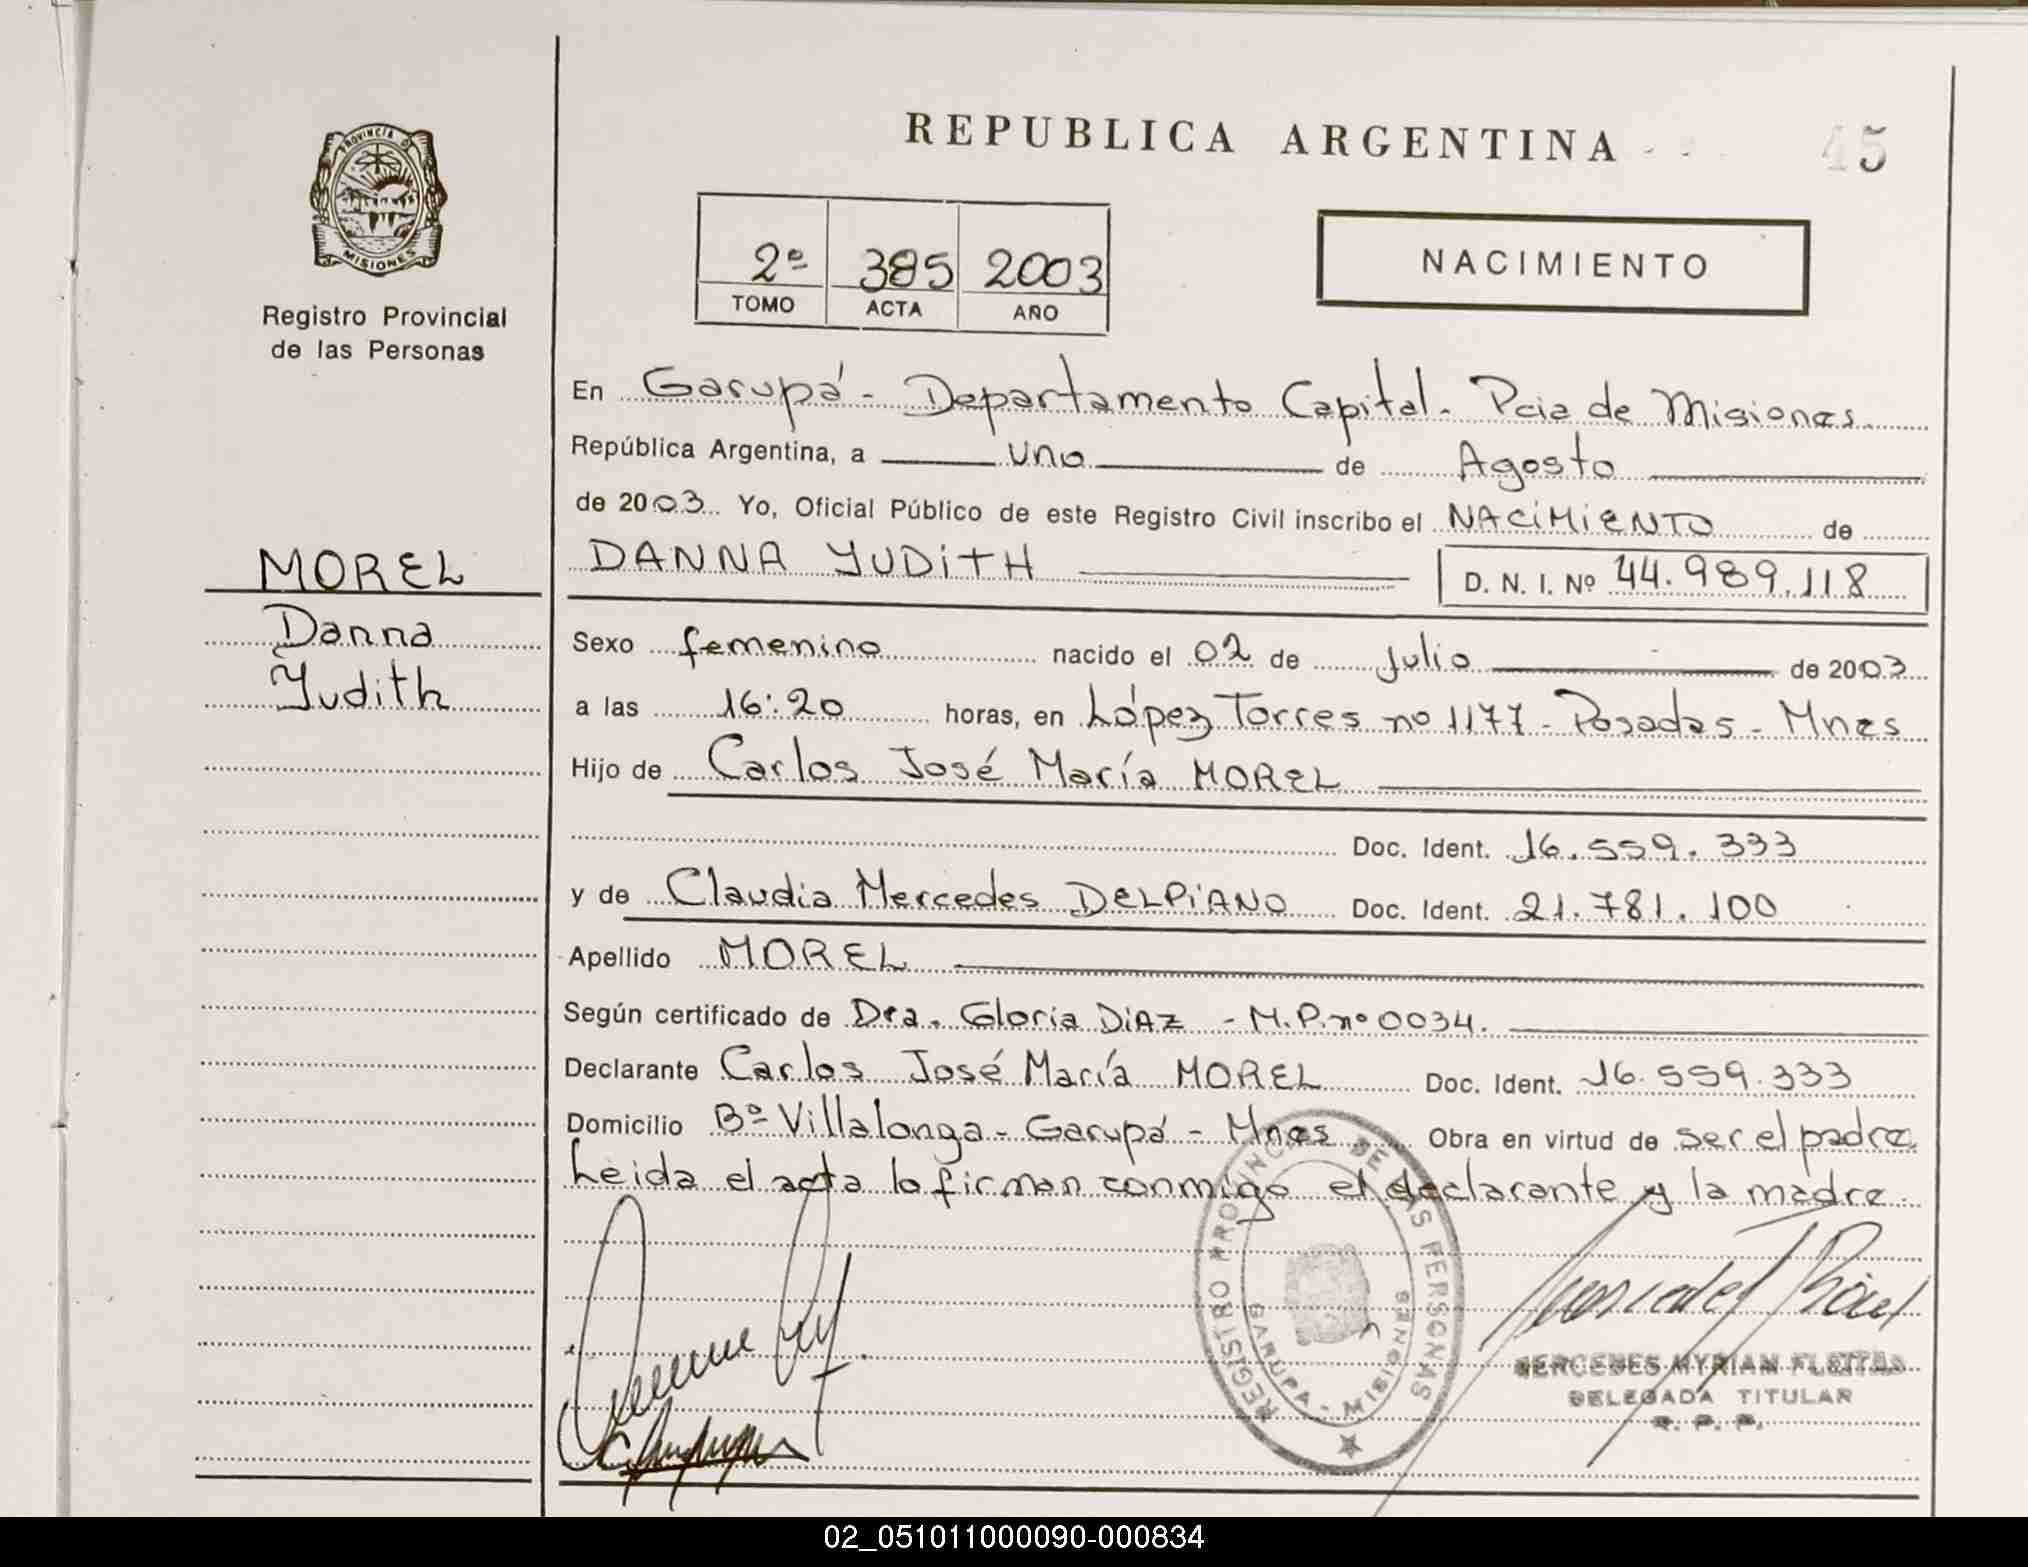 REPUBLICA ARGENTINA
45
PROVINCIA DE
MISIONES
Registro Provincial
de las Personas
2º 385 2003
TOMO ACTA AÑO
NACIMIENTO
En Garupá - Departamento Capital - Pcia de Misiones
República Argentina, a uno de Agosto
de 2003 Yo, Oficial Público de este Registro Civil inscribo el NACIMIENTO de
MOREL
Danna
Yudith
DANNA YUDITH D. N. I. Nº 44.989.118
Sexo femenino nacido el 02 de Julio de 2003
a las 16:20 horas, en López Torres nº 1177 - Posadas - Mnes
Hijo de Carlos José María MOREL
Doc. Ident. 16.559.333
y de Claudia Mercedes DELPIANO Doc. Ident. 21.781.100
Apellido MOREL
Según certificado de Dra. Gloria DIAZ - M.P. nº 0034.
Declarante Carlos José María MOREL Doc. Ident. 16.559.333
Domicilio Bº Villalonga - Garupá - Mnes Obra en virtud de ser el padre.
Leida el acta lo firman conmigo el declarante y la madre.
REGISTRO PROVINCIAL DE LAS PERSONAS
GARUPA - MISIONES
MERCEDES MYRIAN FLEITAS
DELEGADA TITULAR
R. P. P.
02_051011000090-000834